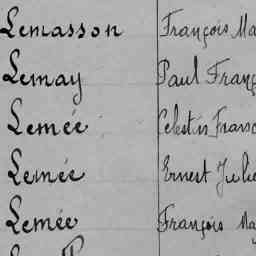 Lemasson François Ma
Lemay Paul Franç
Lemée Celestin Franço
Lemée Ernest Julie
Lemée François Ma